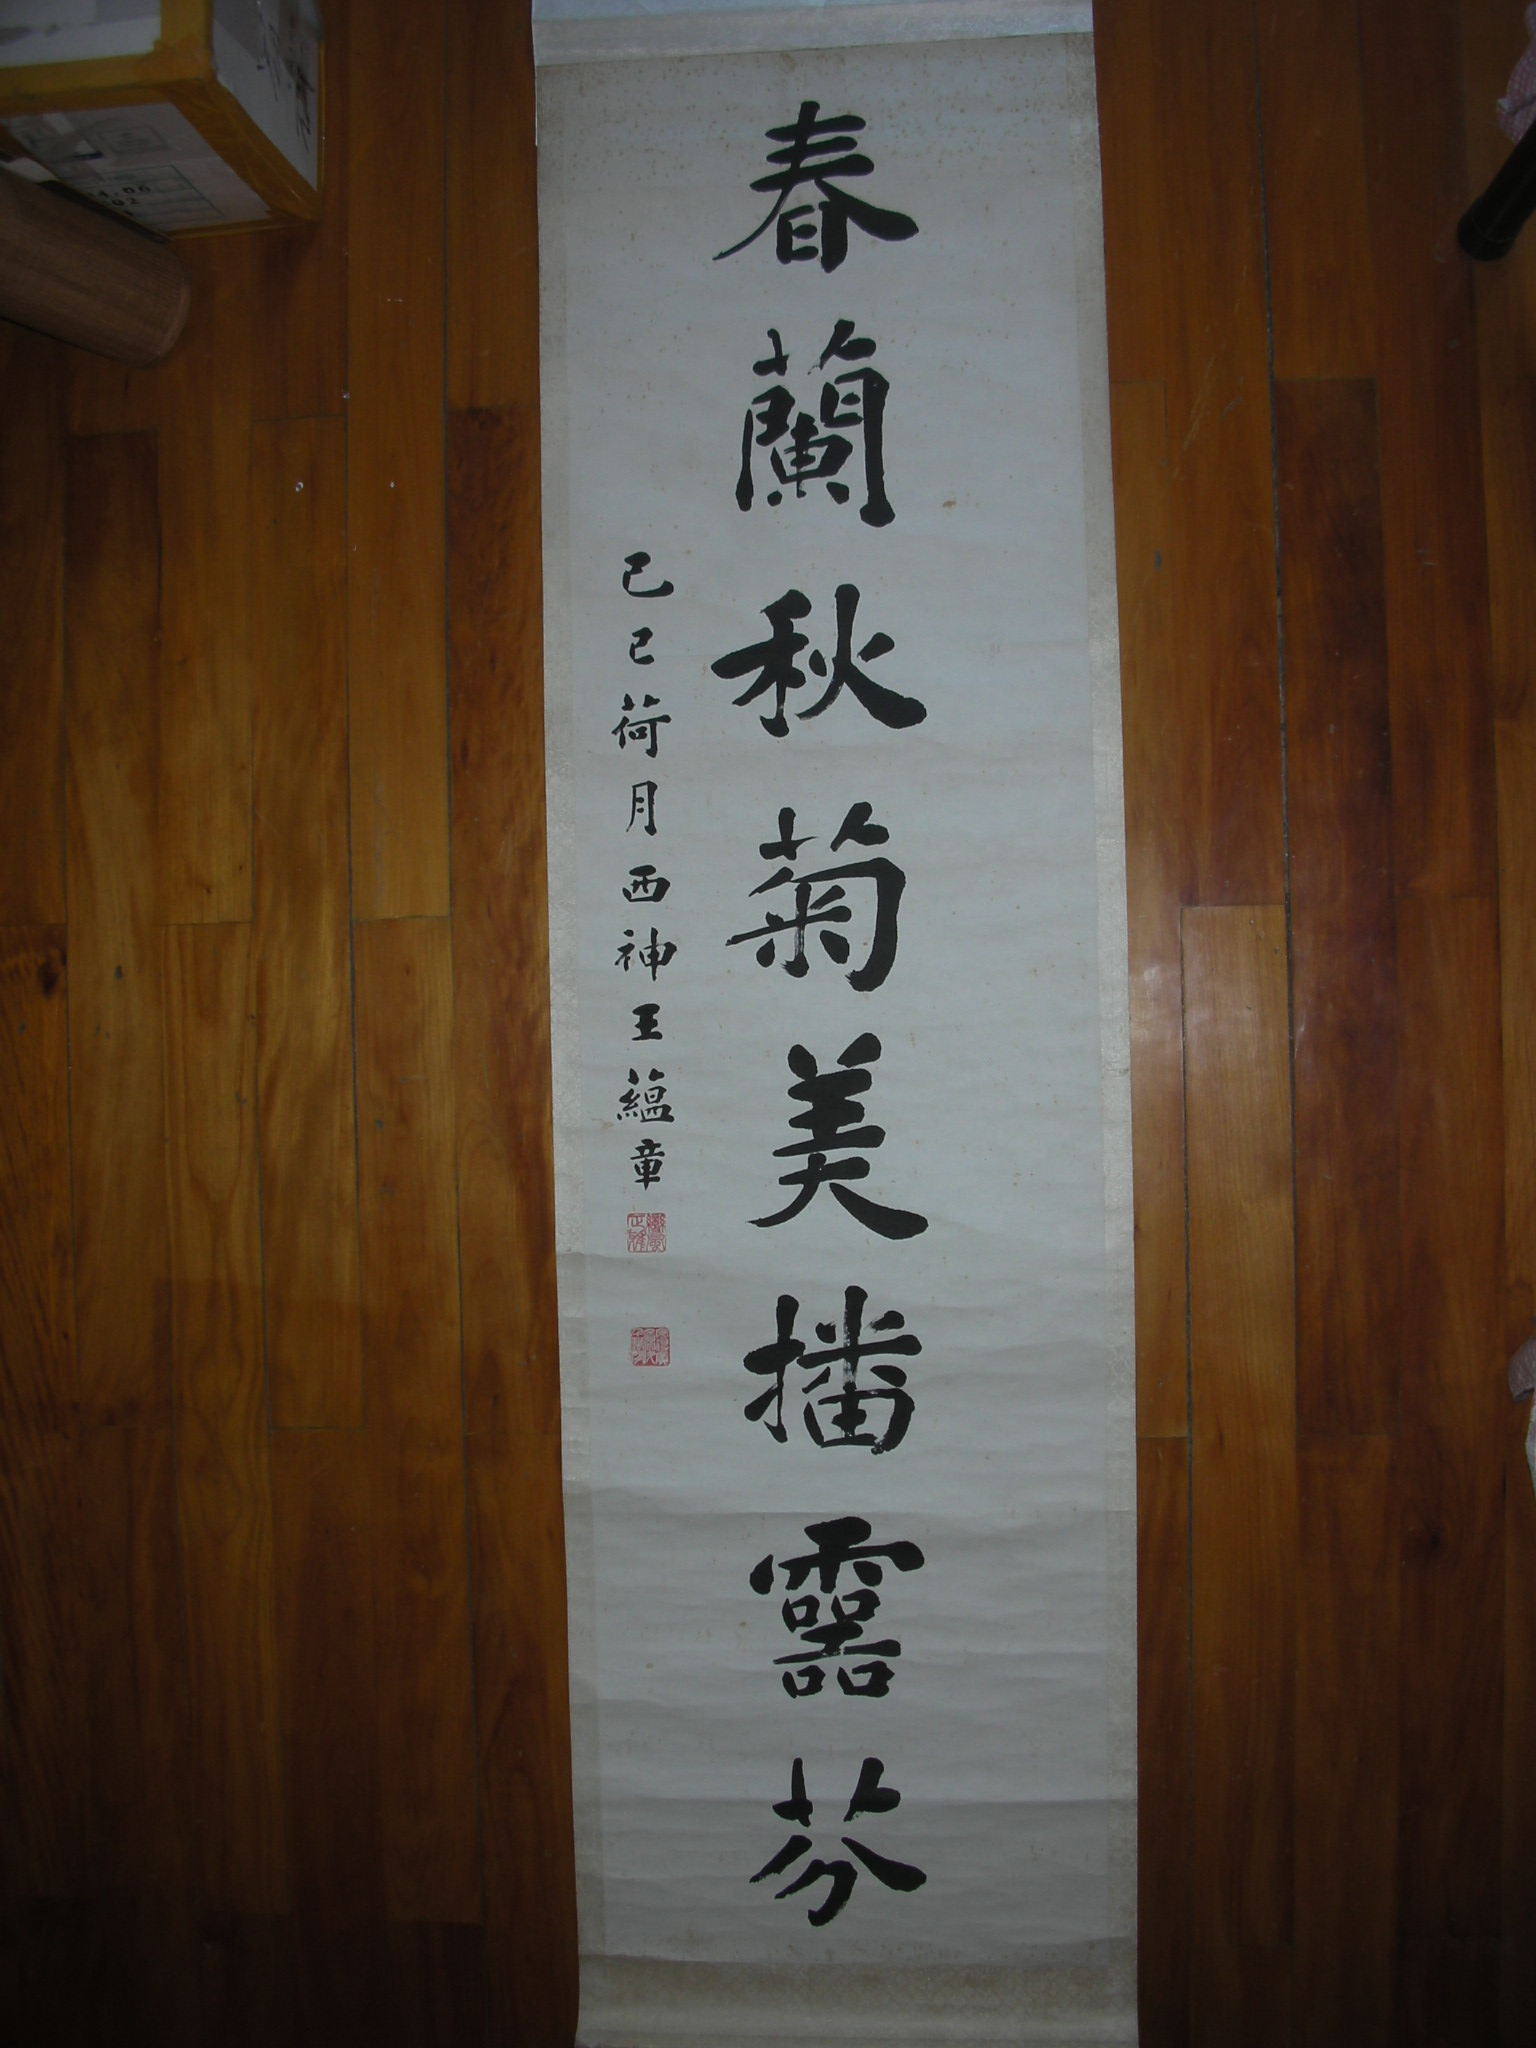 春蘭秋菊美播靈芬
己巳荷月西神王蘊章